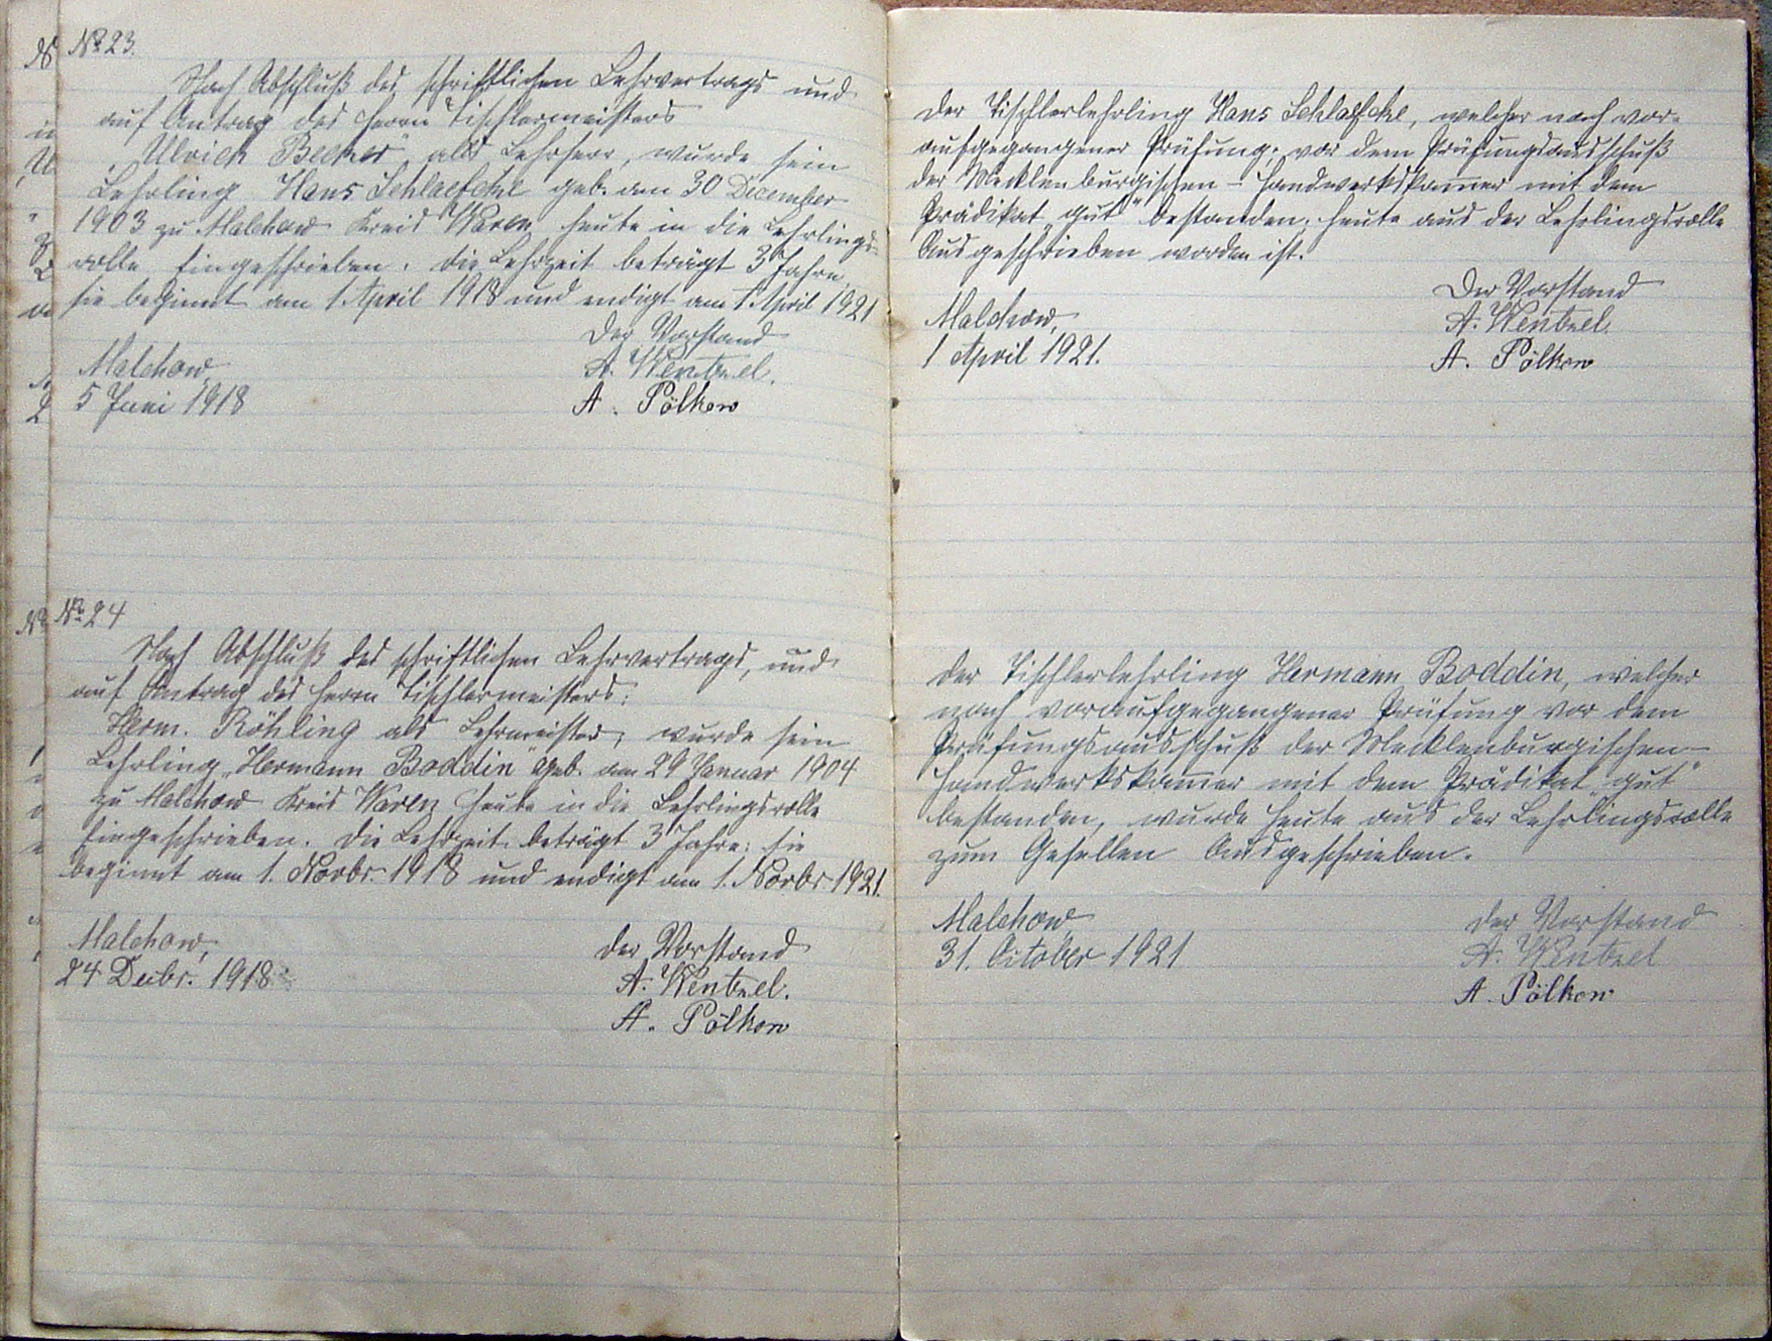 No 23.
Nach Abschluß des schriftlichen Lehrvertrags und
auf Antrag des Herrn Tischlermeisters
"Ulrich Becker" als Lehrherr, wurde sein
Lehrling Hans Schlaefcke geb. am 30 December
1903 zu Malchow Kreis Waren heute in die Lehrlings-
rolle eingeschrieben. Die Lehrzeit beträgt 3 Jahre,
sie beginnt am 1 April 1918 und endigt am 1 April 1921
Der Vorstand
Malchow, A. Wentzel.
5 Juni 1918 A. Pölkow
No 24
Nach Abschluß des schriftlichen Lehrvertrags, und
auf Antrag des Herrn Tischlermeisters:
Herm. Röhling als Lehrmeister, wurde sein
Lehrling „Hermann Boddin" geb. am 29 Januar 1904
zu Malchow Kreis Waren heute in die Lehrlingsrolle
eingeschrieben. Die Lehrzeit beträgt 3 Jahre: sie
beginnt am 1. Novbr. 1918 und endigt am 1. Novbr 1921.
Malchow, Der Vorstand
24 Decbr. 1918 A. Wentzel.
A. Pölkow
Der Tischlerlehrling Hans Schlaefcke, welcher nach vor-
aufgegangener Prüfung, vor dem Prüfungsausschuß
der Mecklenburgischen-Handwerkskam̅er mit dem
Prädikat „gut" bestanden, heute aus der Lehrlingsrolle
Ausgeschrieben worden ist.
Der Vorstand
Malchow, A. Wentzel.
1 April 1921. A. Pölkow
Der Tischlerlehrling Hermann Boddin, welcher
nach voraufgegangener Prüfung vor dem
Prüfungsausschuß der Mecklenburgischen-
Handwerkskam̅er mit dem Prädikat „gut"
bestanden, wurde heute aus der Lehrlingsrolle
zum Gesellen Ausgeschrieben.
Malchow, Der Vorstand
31. October 1921 A. Wentzel
A. Pölkow